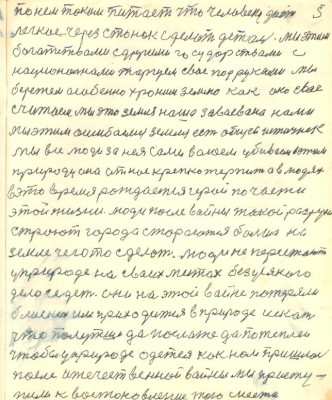 по нем током питает что человеку дает 5
легкое через станок сделать деталь. мы этим
богатством с другими государствами с
национальнами торгуем своё под руками мы
бережем особенно храним землю как око своё
считаем мы это земля наша завоевана нами
мы этим ошибаемся земля есть
мы все люди за нея сами воюем убиваем этим
природу она от нас крепко терпит а в людях
в это время рождается герой по части
этой жизни. люди после войны такой разрухи
строют города стараются больш на
земле чего то сделать. люди не перестают
у природе на своих местах без всякого
дело сидеть. они на этой войне потеряли
близких им приходится в природе искать
что получше да послаже да потеплее
чтобы у природе одется как нам пришлось
после отечественной войны мы присту-
пили к востоновление того места